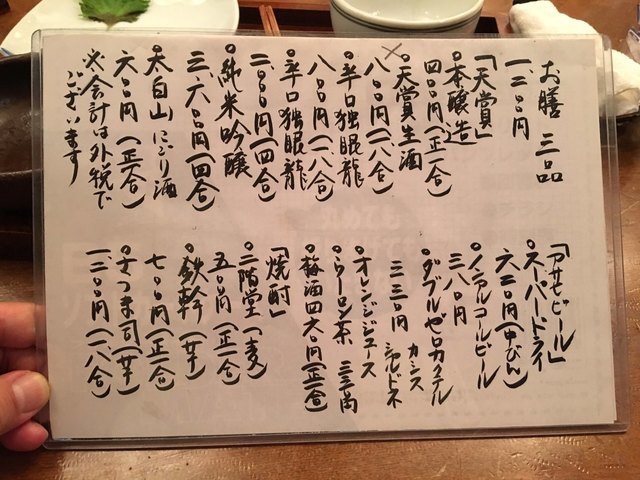 お膳 三品
一二〇〇円
「天賞」
○本醸造
四〇〇円(正一合)
○天賞生酒
八〇〇円(一、八合)
○辛口独眼龍
八〇〇円(一、八合)
○辛口独眼龍
二、〇〇〇円(四合)
○純米吟醸
三、六〇〇円(四合)
○大白山 にごり酒
六〇〇円(正一合)
※会計は外税で
ございます
「アサヒビール」
○スーパードライ
六二〇円(中びん)
○ノンアルコールビール
三八〇円
○ダブルゼロカクテル
カシス
三三〇円 シャルドネ
○オレンジジュース
○ウーロン茶 三三〇円
○梅酒四六〇円(正一合)
「焼酎」
○二階堂(麦)
五〇〇円(正一合)
○鉄幹(芋)
七〇〇円(正一合)
○さつま司(芋)
一二〇〇円(一、八合)